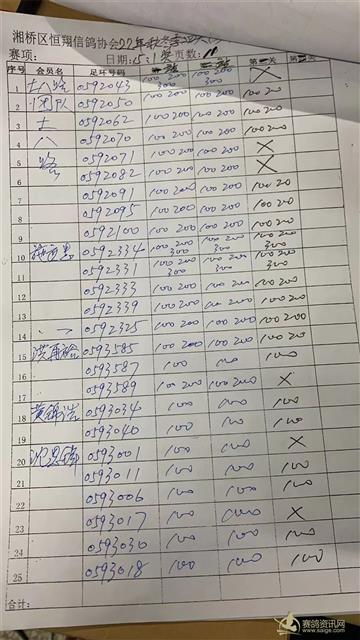 湘桥区恒翔信鸽协会22年秋冬季
赛项： 页数：11
序号 会员名 足环号码 第一关 第二关 第三关 第四关
1 十八路 0592043 100 200 300 100 200 X
2 团队 0592050 100 200 100 200 100 200
3 土 0592062 100 200 100 200 100 200
4 八 0592070 100 200 100 200 100 200
5 路 0592071 100 200 100 200 X
6 0592082 100 200 100 200 X
7 0592091 100 200 100 200 100 200
8 0592095 100 200 100 200 100 200
9 0592100 100 200 100 200 100 200
10 0592334 100 200 300 100 200 300 100 200 300
11 0592331 100 200 300 100 200 300 100 200 300
12 0592333 100 200 100 200 100 200
13 0592339 100 200 100 200 100 200
14 0592325 100 200 100 200 100 200
15 0593585 100 200 100 200 100 200
16 0593587 100 100 100
17 0593589 100 200 100 200 X
18 黄锦浩 0593034 100 100 100
19 0593040 100 100 100
20 0593001 100 100 X
21 0593011 100 100 100
22 0593006 100 100 100
23 0593017 100 100 X
24 0593030 100 100 100
25 0593018 100 100 100
合计：
赛鸽资讯网
www.saige.com